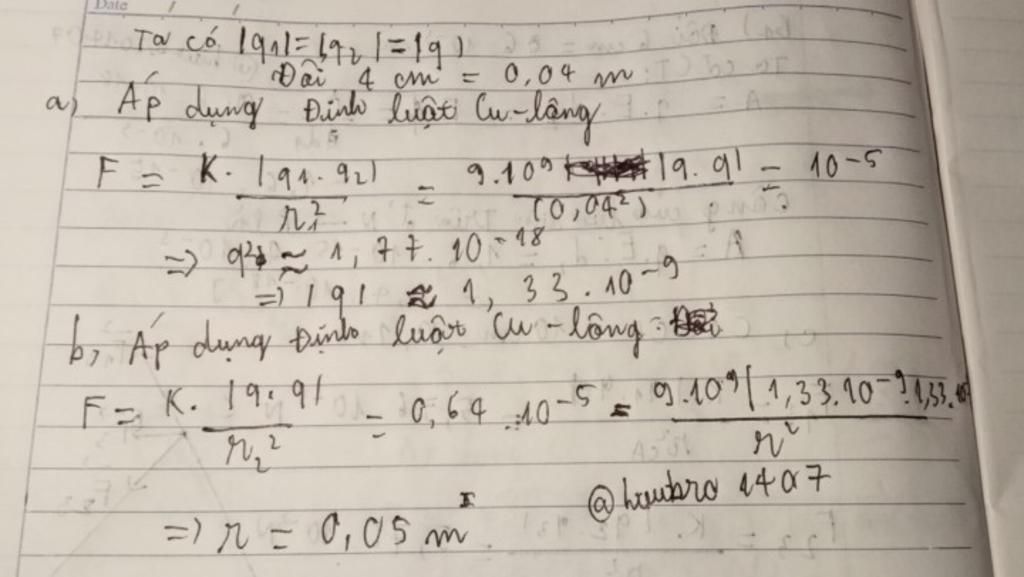 Date
Ta có |q1| = |q2| = |q|
Đổi 4 cm = 0,04 m
a) Áp dụng Định luật Cu-lông
F = K. |q1.q2| / r1² = 9.10⁹ |q.q| / (0,04²) = 10⁻⁵
=> q² ≈ 1,77.10⁻¹⁸
=> |q| ≈ 1,33.10⁻⁹
b, Áp dụng Định luật Cu-lông:
F = K. |q.q| / r2² = 0,64.10⁻⁵ = 9.10⁹| 1,33.10⁻⁹.1,33.10 / r²
@huubro 1407
=> r = 0,05 m